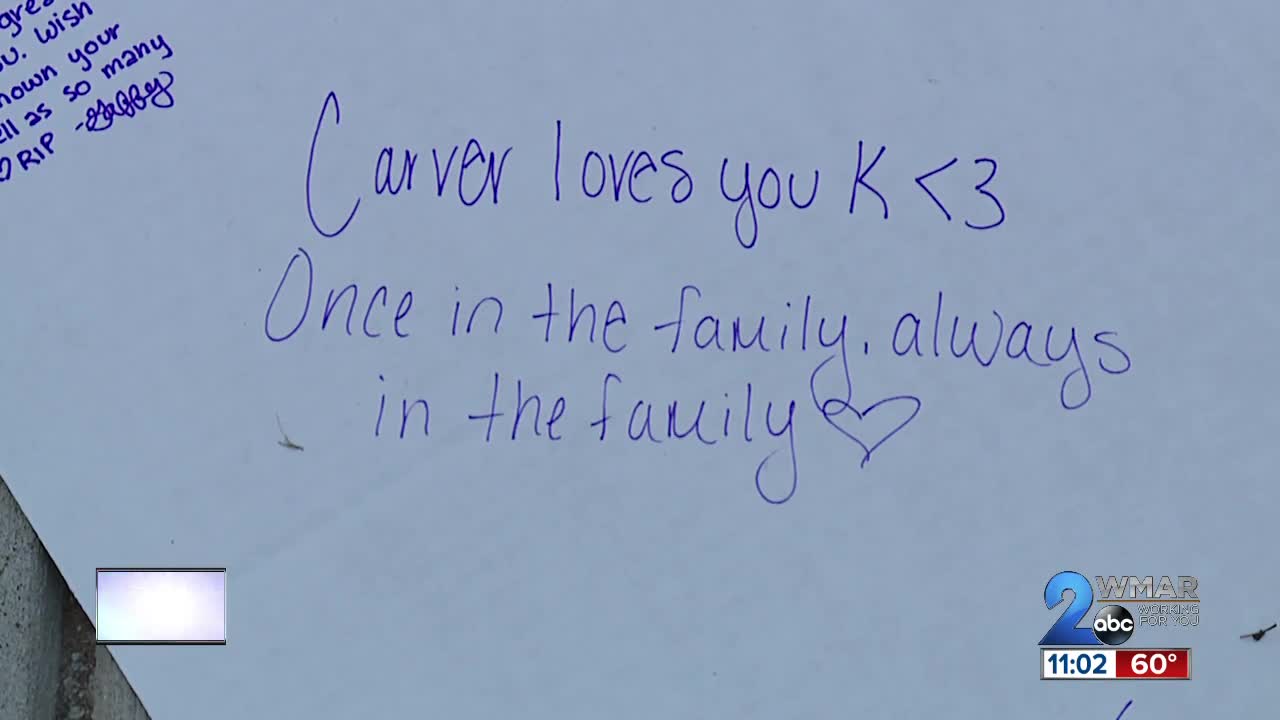 you. Wish
your
as so many
RIP
Carver loves you K <3
Once in the family, always
in the family
2 WMAR
abc WORKING
FOR YOU
11:02 60°